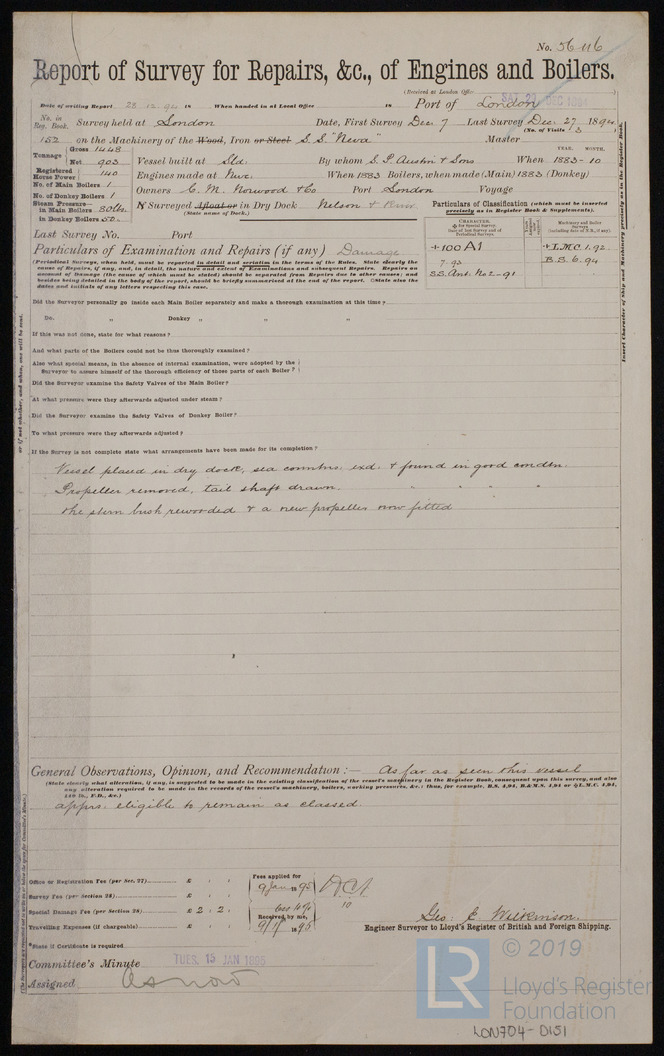 No. 56416
Report of Survey for Repairs, &c., of Engines and Boilers.
(Received at London Office SAT. 29 DEC 1894)
Date of writing Report 28 12 94 18 When handed in at Local Office 18 Port of London
No. in Reg. Book. Survey held at London Date, First Survey Dec. 7 Last Survey Dec. 27 1894
(No. of Visits 3)
152 on the Machinery of the Wood, Iron or Steel S.S. "Neva" Master
Tonnage Gross 1448 Net 903 Vessel built at Sld. By whom S. P. Austin & Sons When 1883-10
YEAR. MONTH.
Registered Horse Power 140 Engines made at Nwc. When 1883 Boilers, when made (Main) 1883 (Donkey)
No. of Main Boilers 1
No. of Donkey Boilers 1 Owners C. M. Norwood & Co Port London Voyage
Steam Pressure— in Main Boilers 80lbs. in Donkey Boilers 50.
If Surveyed Afloat or in Dry Dock Nelson & River
(State name of Dock.)
Particulars of Classification (which must be inserted precisely as in Register Book & Supplements).
Last Survey No. Port
CHARACTER.
+100A1
7.93
S.S. No2-91
+L.M.C. 1.92
B.S. 6.94
Particulars of Examination and Repairs (if any) Damage
(Periodical Surveys, when held, must be reported in detail and seriatim in the terms of the Rules. State clearly the
cause of Repairs, if any, and, in detail, the nature and extent of Examinations and subsequent Repairs. Repairs on
account of Damage (the cause of which must be stated) should be separated from Repairs due to other causes; and
besides being detailed in the body of the report, should be briefly summarised at the end of the report. State also the
dates and initials of any letters respecting this case.
Did the Surveyor personally go inside each Main Boiler separately and make a thorough examination at this time?
Do. „ Donkey „ „ „
If this was not done, state for what reasons?
And what parts of the Boilers could not be thus thoroughly examined?
Also what special means, in the absence of internal examination, were adopted by the
Surveyor to assure himself of the thorough efficiency of those parts of each Boiler?
Did the Surveyor examine the Safety Valves of the Main Boiler?
At what pressure were they afterwards adjusted under steam?
Did the Surveyor examine the Safety Valves of Donkey Boiler?
To what pressure were they afterwards adjusted?
If the Survey is not complete state what arrangements have been made for its completion?
Vessel placed in dry dock, sea connctns. exd. & found in good condtn.
Propeller removed, tail shaft drawn. " " " "
the stern bush rewooded & a new propeller now fitted
General Observations, Opinion, and Recommendation:— As far as seen this vessel
(State clearly what alteration, if any, is suggested to be made in the existing classification of the vessel's machinery in the Register Book, consequent upon this survey, and also
any alteration required to be made in the records of the vessel's machinery, boilers, working pressures, &c.; thus, for example, B.S. 4,94, B.&M.S. 4,94 or L.M.C. 4,94,
apprs. eligible to remain as classed.
Office or Registration Fee (per Sec. 27) £ : :
Survey Fee (per Section 28) £ : :
Special Damage Fee (per Section 29) £ 2 : 2 :
Travelling Expenses (if chargeable) £ : :
Fees applied for
9 Jan 1895
less 10%
Received by me,
9/1/ 1895
Geo. E. Wilkinson.
Engineer Surveyor to Lloyd's Register of British and Foreign Shipping.
*State if Certificate is required
Committee's Minute TUES. 15 JAN 1895
Assigned As now
Insert Character of Ship and Machinery precisely as in the Register Book.
LR
© 2019
Lloyd's Register
Foundation
LON704-0151